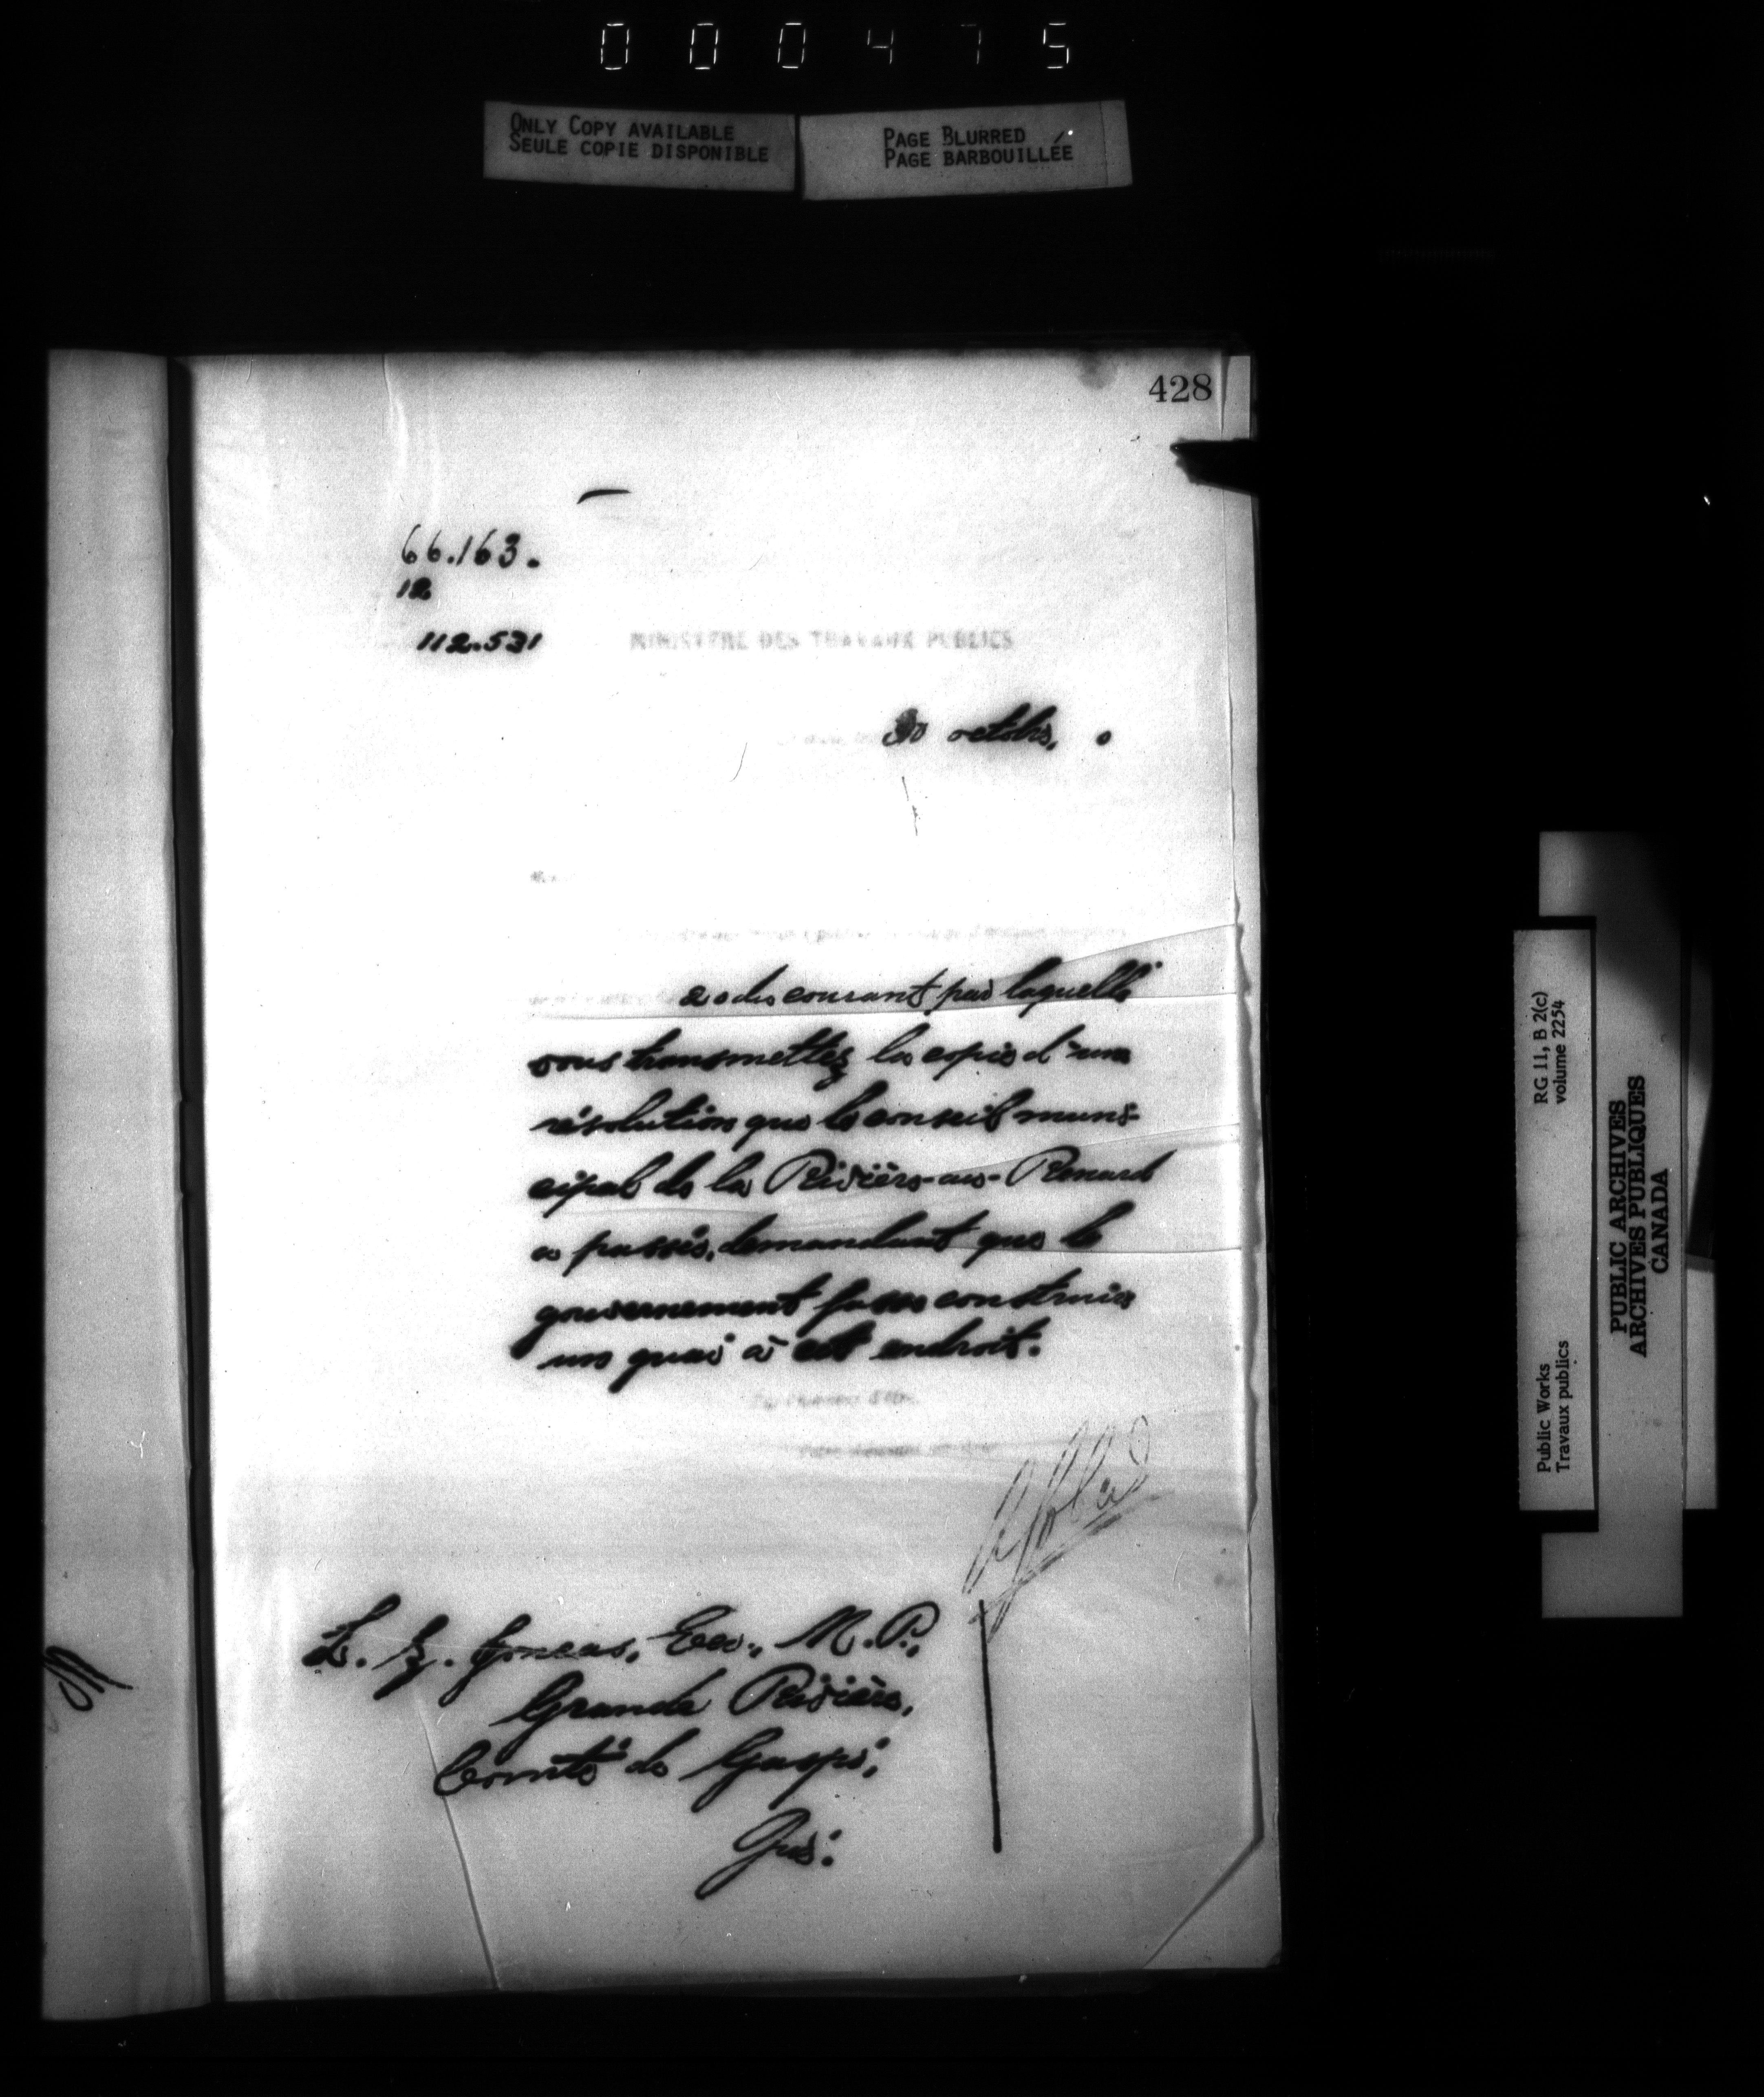 000475
ONLY COPY AVAILABLE
SEULE COPIE DISPONIBLE
PAGE BLURRED
PAGE BARBOUILLÉE
428
66.163.
12
112.531
MINISTÈRE DES TRAVAUX PUBLICS
30 octobre,
20 du courant par laquelle
vous transmettez la copie d'une
résolution que le conseil muni-
cipal de la Rivière-au-Renard
a passée, demandant que le
gouvernement fasse construire
un quai à cet endroit.
L. Z. Joncas, Ecr., M. P.,
Grande Rivière,
Comté de Gaspé,
Qué:
RG 11, B 2(c)
volume 2254
Public Works
Travaux publics
PUBLIC ARCHIVES
ARCHIVES PUBLIQUES
CANADA